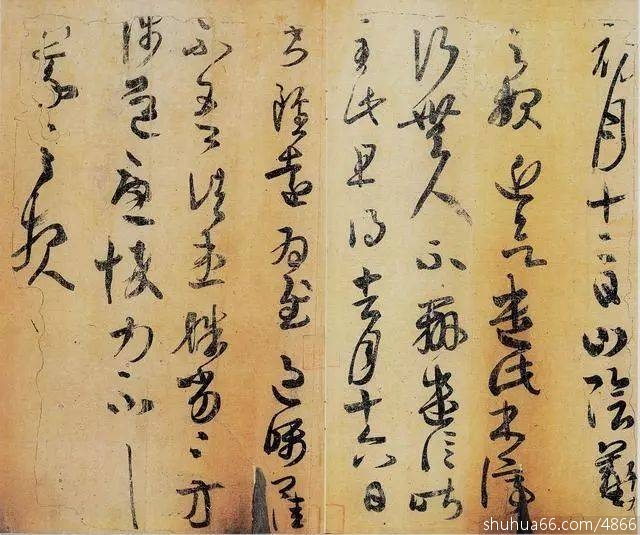 初月十二日山陰羲
之報近欲遣此書停
行無人不辦遣信昨
至此且得去月十六日
書雖遠為慰過囑卿佳
不吾諸患殊劣〻方
涉道憂悴力不具
羲之報
shuhua66.com/4866